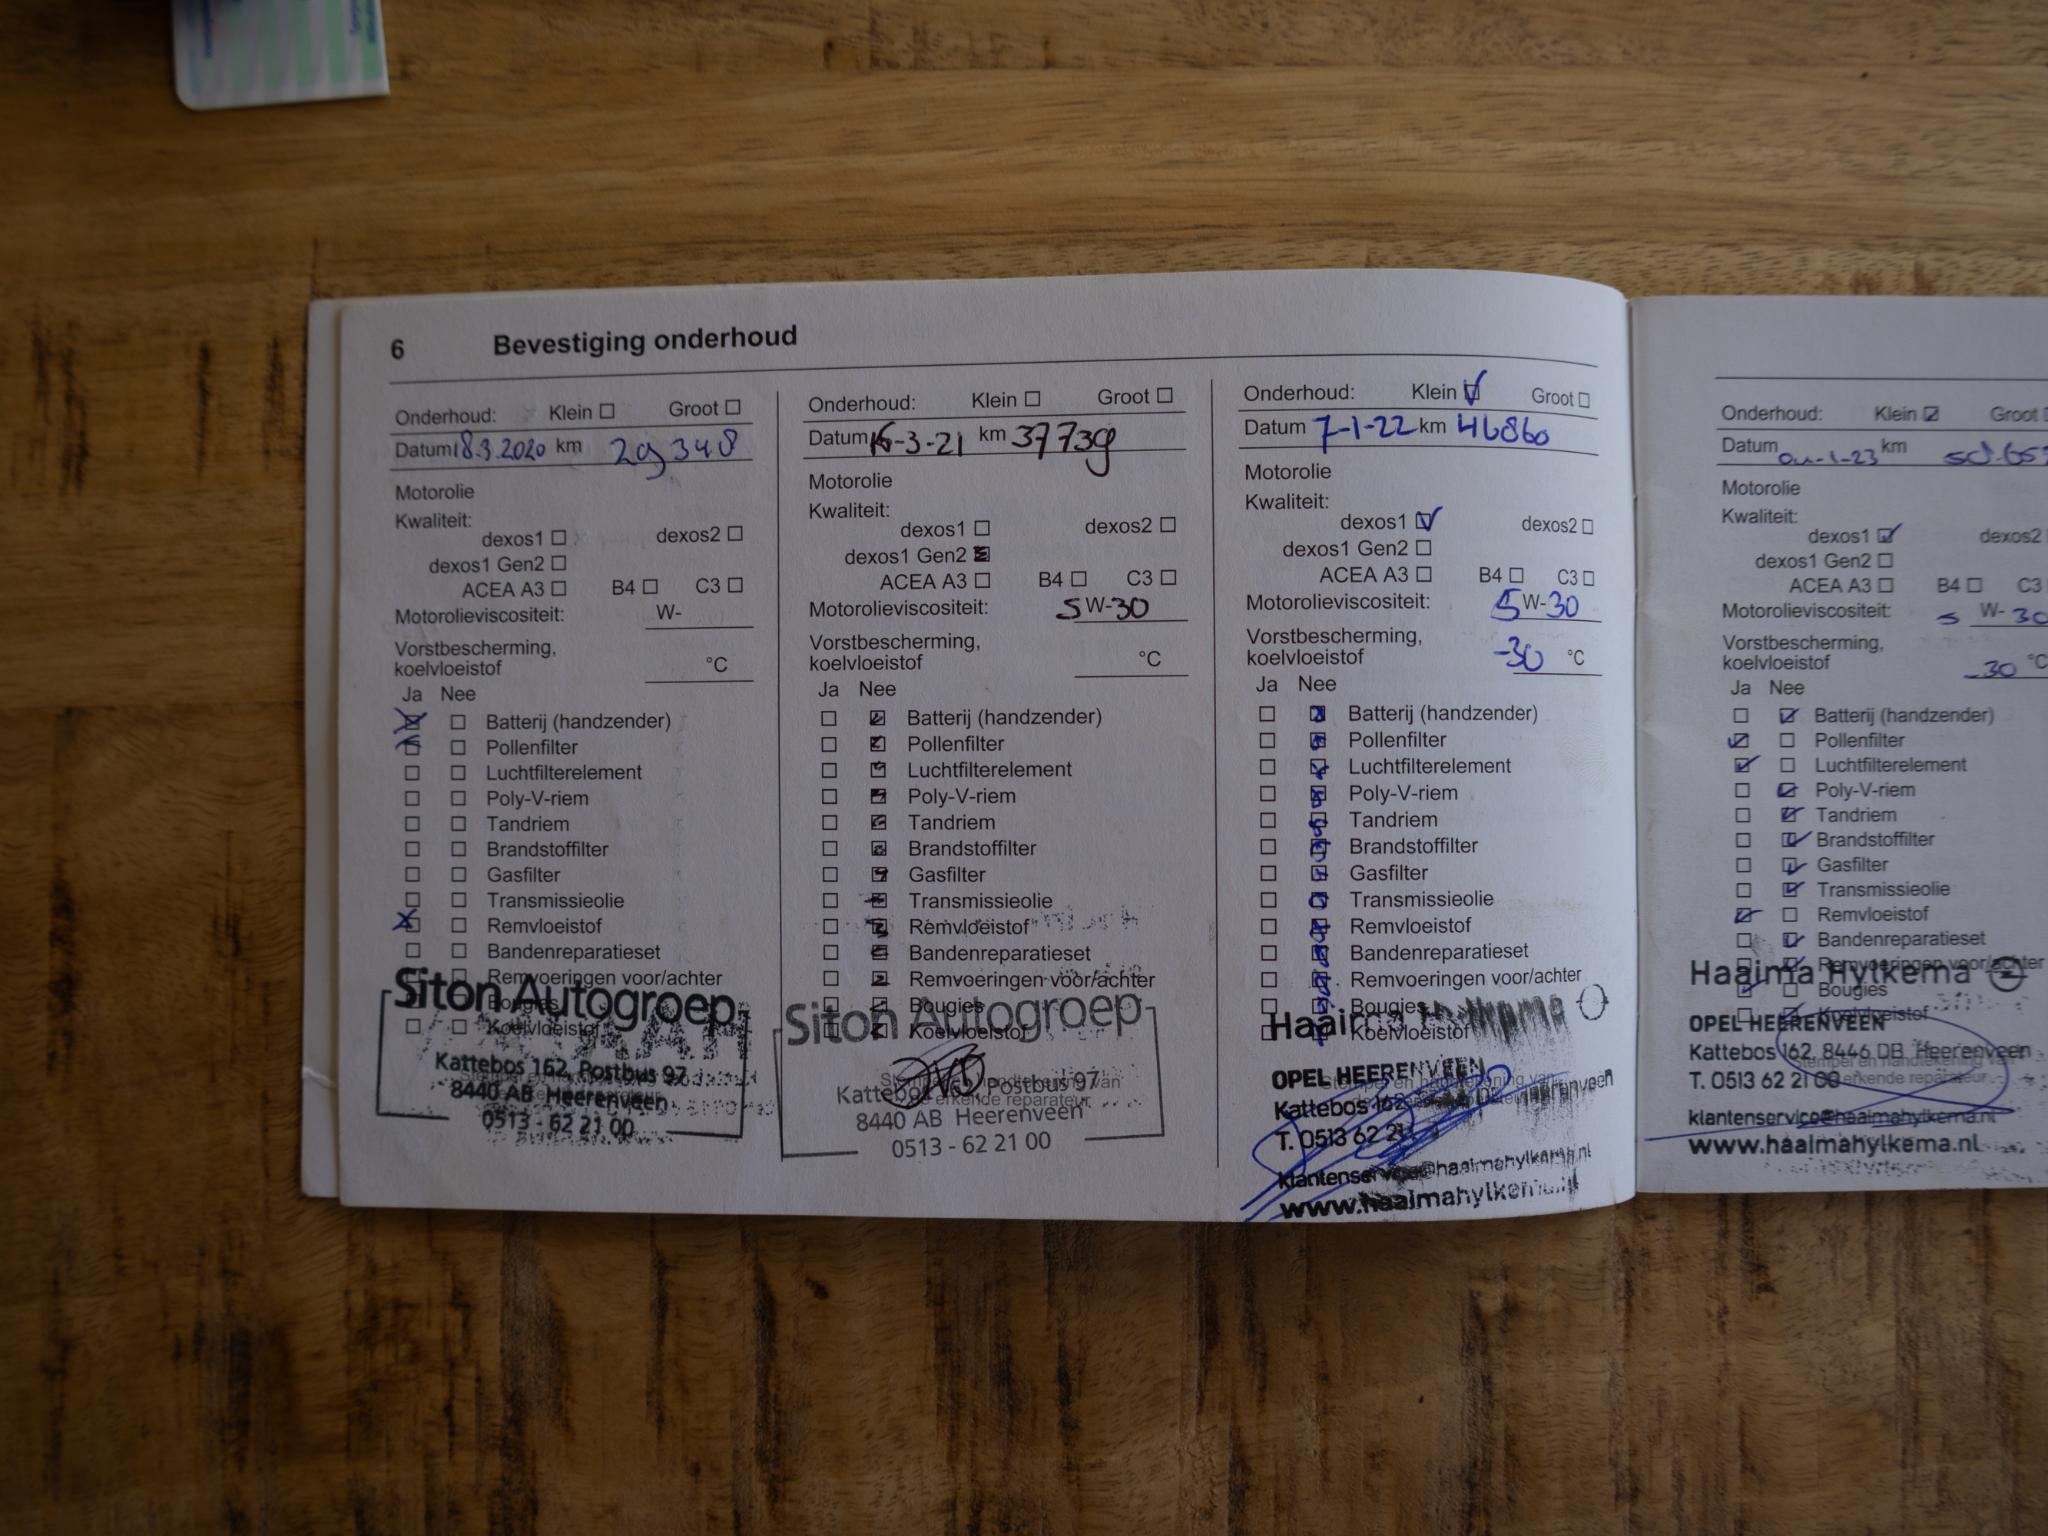 6 Bevestiging onderhoud
Onderhoud: Klein Groot
Datum 18.3.2020 km 29 348
Motorolie
Kwaliteit:
dexos1 dexos2
dexos1 Gen2
ACEA A3 B4 C3
Motorolieviscositeit: W-
Vorstbescherming,
koelvloeistof °C
Ja Nee
Batterij (handzender)
Pollenfilter
Luchtfilterelement
Poly-V-riem
Tandriem
Brandstoffilter
Gasfilter
Transmissieolie
Remvloeistof
Bandenreparatieset
Remvoeringen voor/achter
Bougies
Koelvloeistof
Siton Autogroep
Kattebos 162, Postbus 97
8440 AB Heerenveen
0513 - 62 21 00
Onderhoud: Klein Groot
Datum 16-3-21 km 37739
Motorolie
Kwaliteit:
dexos1 dexos2
dexos1 Gen2
ACEA A3 B4 C3
Motorolieviscositeit: 5 W-30
Vorstbescherming,
koelvloeistof °C
Ja Nee
Batterij (handzender)
Pollenfilter
Luchtfilterelement
Poly-V-riem
Tandriem
Brandstoffilter
Gasfilter
Transmissieolie
Remvloeistof
Bandenreparatieset
Remvoeringen voor/achter
Bougies
Koelvloeistof
Siton Autogroep
Postbus 97
erkende reparateur
8440 AB Heerenveen
0513 - 62 21 00
Onderhoud: Klein Groot
Datum 7-1-22 km 46860
Motorolie
Kwaliteit:
dexos1 dexos2
dexos1 Gen2
ACEA A3 B4 C3
Motorolieviscositeit: 5 W-30
Vorstbescherming,
koelvloeistof -30 °C
Ja Nee
Batterij (handzender)
Pollenfilter
Luchtfilterelement
Poly-V-riem
Tandriem
Brandstoffilter
Gasfilter
Transmissieolie
Remvloeistof
Bandenreparatieset
Remvoeringen voor/achter
Bougies
Koelvloeistof
Haaima Hylkema
OPEL HEERENVEEN
Stempel en handtekening van
Kattebos 162 Heerenveen
erkende reparateur
T. 0513 62 21
klantenservice@haaimahylkema.nl
www.haaimahylkema.nl
Onderhoud: Klein Groot
Datum 04-1-23 km
Motorolie
Kwaliteit:
dexos1 dexos2
dexos1 Gen2
ACEA A3 B4 C3
Motorolieviscositeit: 5 W-30
Vorstbescherming,
koelvloeistof -30 °C
Ja Nee
Batterij (handzender)
Pollenfilter
Luchtfilterelement
Poly-V-riem
Tandriem
Brandstoffilter
Gasfilter
Transmissieolie
Remvloeistof
Bandenreparatieset
Remvoeringen voor/achter
Bougies
Koelvloeistof
Haaima Hylkema
OPEL HEERENVEEN
Kattebos 162, 8446 DB Heerenveen
Stempel en handtekening van
T. 0513 62 21 00 erkende reparateur
klantenservice@haaimahylkema.nl
www.haaimahylkema.nl